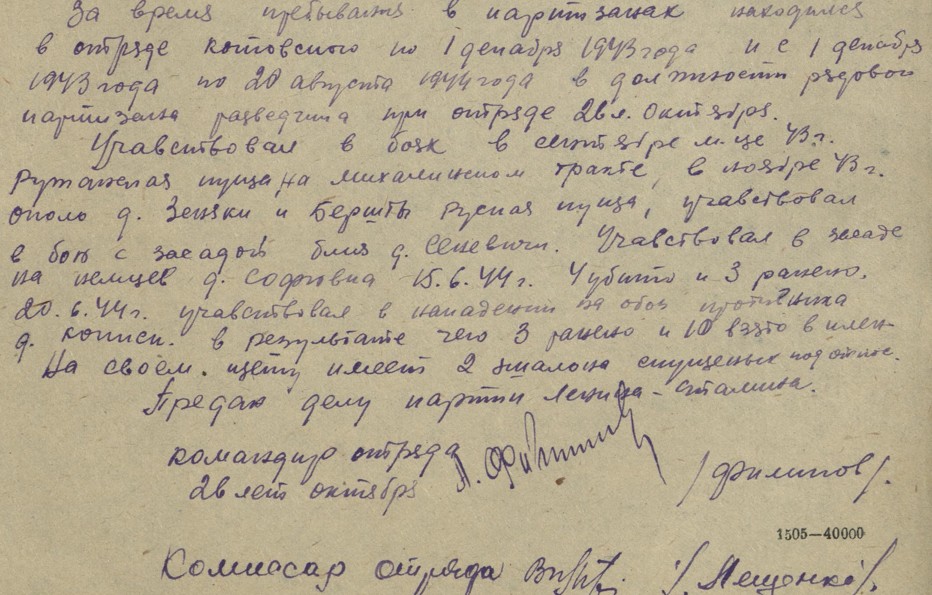 За время пребывания в партизанах находился
в отряде котовского по 1 декабря 1943 года и с 1 декабря
1943 года по 20 августа 1944 года в должности рядового
партизана разведчика при отряде 26 л. Октября.
Учавствовал в боях в сентябре м-це 43 г.
Ружанская пуща, на михалинском тракте, в ноябре 43 г.
около д. Зеняки и Бершты Руская пуща, учавствовал
в бою с засадой близ д. Сеневичи. Учавствовал в засаде
на немцев д. Софиевка 15.6.44 г. 4 убито и 3 ранено.
20.6.44 г. учавствовал в нападении на обоз противника
д. в результате чего 3 ранено и 10 взято в плен.
На своем. щету имеет 2 эшалона спущеных под откос.
Предан делу партии Ленина-Сталина.
командир отряда
26 лет октября /Филипов/.
1505—40000
Комиссар отряда /Мещенко/.